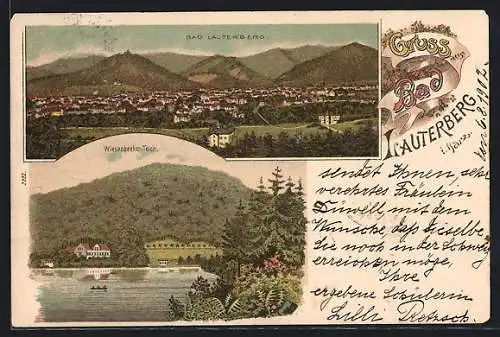 BAD LAUTERBERG.
Gruss
aus
Bad
LAUTERBERG
i. Harz.
6.8.1912
Wiesenbecker Teich.
2222.
sendet Ihnen, sehr
verehrtes Fräulein
Düwell, mit dem
Wunsche, daß dieselbe
Sie noch in der Schweiz
erreichen möge,
Ihre
ergebene Schülerin
Lilli Pretzsch.